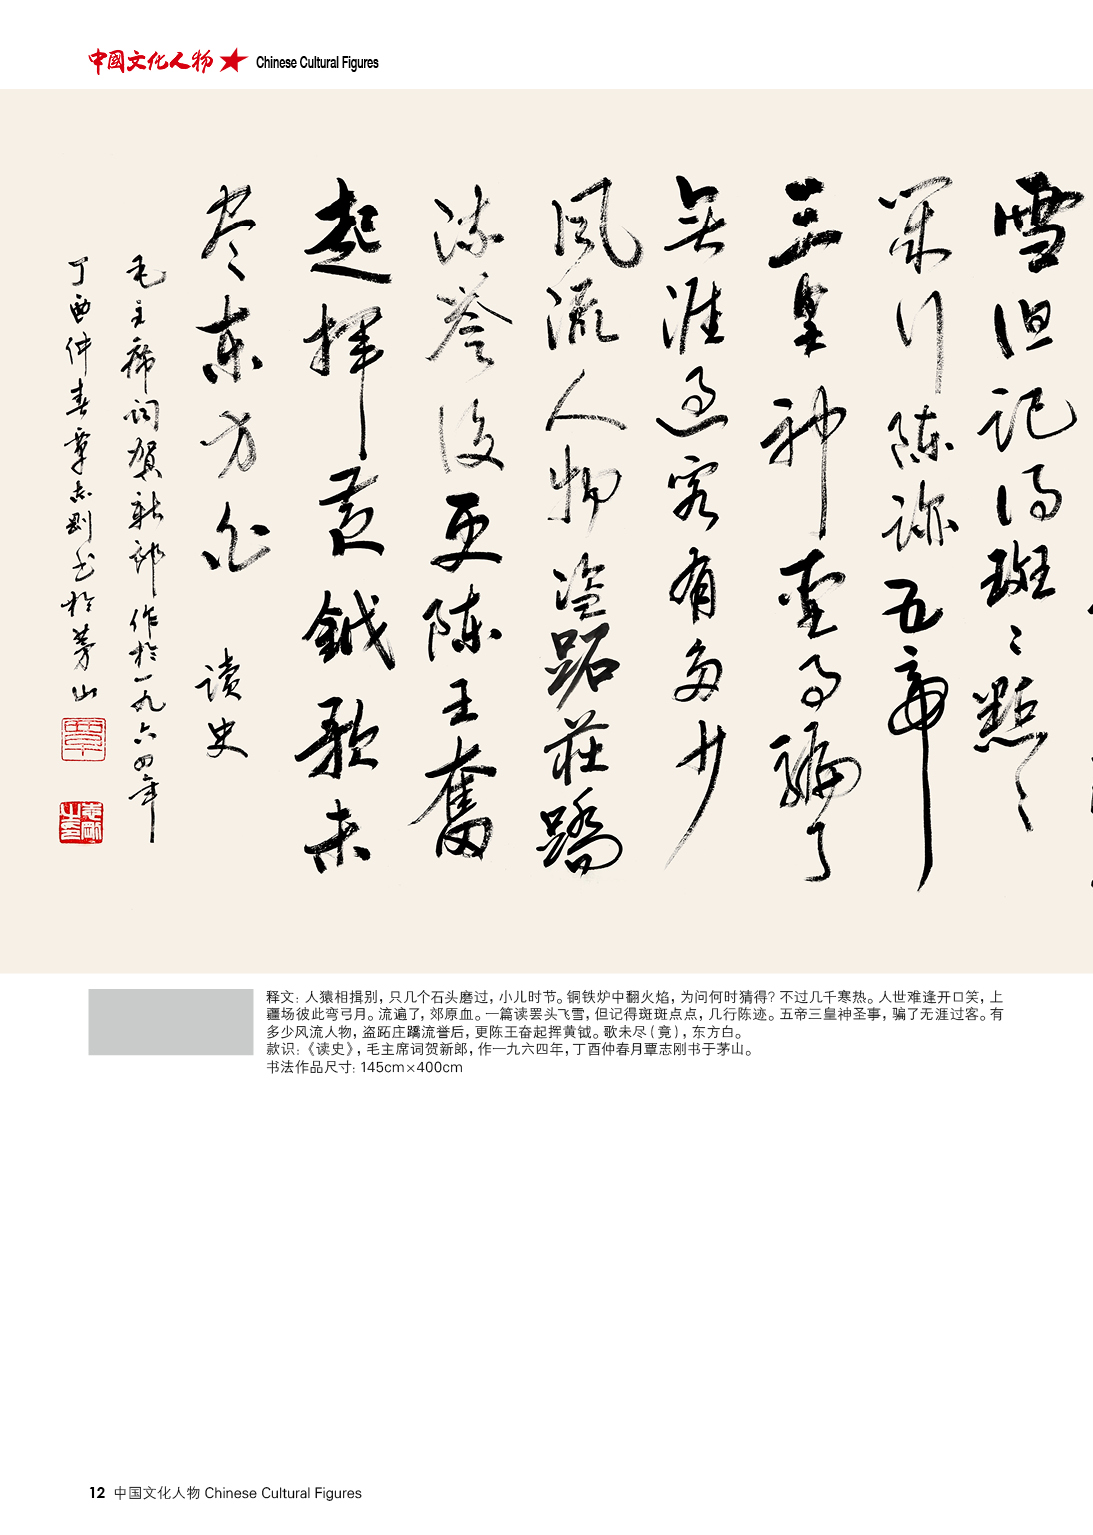 中國文化人物 Chinese Cultural Figures
雪但记得斑斑點點
几行陈迹五帝
三皇神聖事骗了
无涯过客有多少
风流人物盗跖莊蹻
流誉後更陈王奮
起揮黄鉞歌未
尽东方白 读史
毛主席词贺新郎作於一九六四年
丁酉仲春覃志刚书於茅山
释文：人猿相揖别，只几个石头磨过，小儿时节。铜铁炉中翻火焰，为问何时猜得？不过几千寒热。人世难逢开口笑，上
疆场彼此弯弓月。流遍了，郊原血。一篇读罢头飞雪，但记得斑斑点点，几行陈迹。五帝三皇神圣事，骗了无涯过客。有
多少风流人物，盗跖庄蹻流誉后，更陈王奋起挥黄钺。歌未尽（竟），东方白。
款识：《读史》，毛主席词贺新郎，作一九六四年，丁酉仲春月覃志刚书于茅山。
书法作品尺寸：145cm×400cm
12 中国文化人物 Chinese Cultural Figures